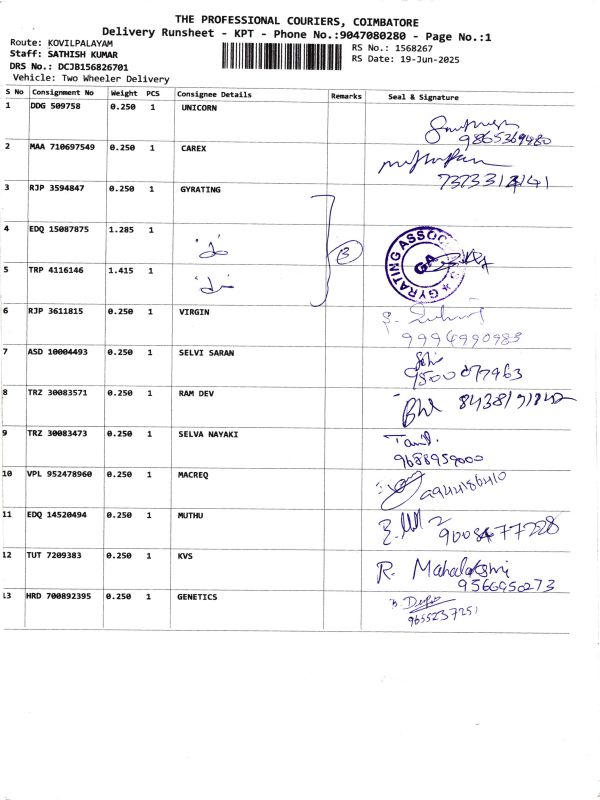 THE PROFESSIONAL COURIERS, COIMBATORE
Delivery Runsheet - KPT - Phone No.:9047080280 - Page No.:1
Route: KOVILPALAYAM
RS No.: 1568267
Staff: SATHISH KUMAR
RS Date: 19-Jun-2025
DRS No.: DCJB156826701
Vehicle: Two Wheeler Delivery
S No Consignment No Weight PCS Consignee Details Remarks Seal & Signature
1 DDG 509758 0.250 1 UNICORN
9865369480
2 MAA 710697549 0.250 1 CAREX
3 RJP 3594847 0.250 1 GYRATING
4 EDQ 15087875 1.285 1
3
GYRATING ASSOC
GA
5 TRP 4116146 1.415 1
6 RJP 3611815 0.250 1 VIRGIN
9994990983
7 ASD 10004493 0.250 1 SELVI SARAN
9500077963
8 TRZ 30083571 0.250 1 RAM DEV
9 TRZ 30083473 0.250 1 SELVA NAYAKI
9688959000
10 VPL 952478960 0.250 1 MACREQ
11 EDQ 14520494 0.250 1 MUTHU
9008477228
12 TUT 7209383 0.250 1 KVS
R. Mahalakshmi
9566950273
13 HRD 700892395 0.250 1 GENETICS
9655237251